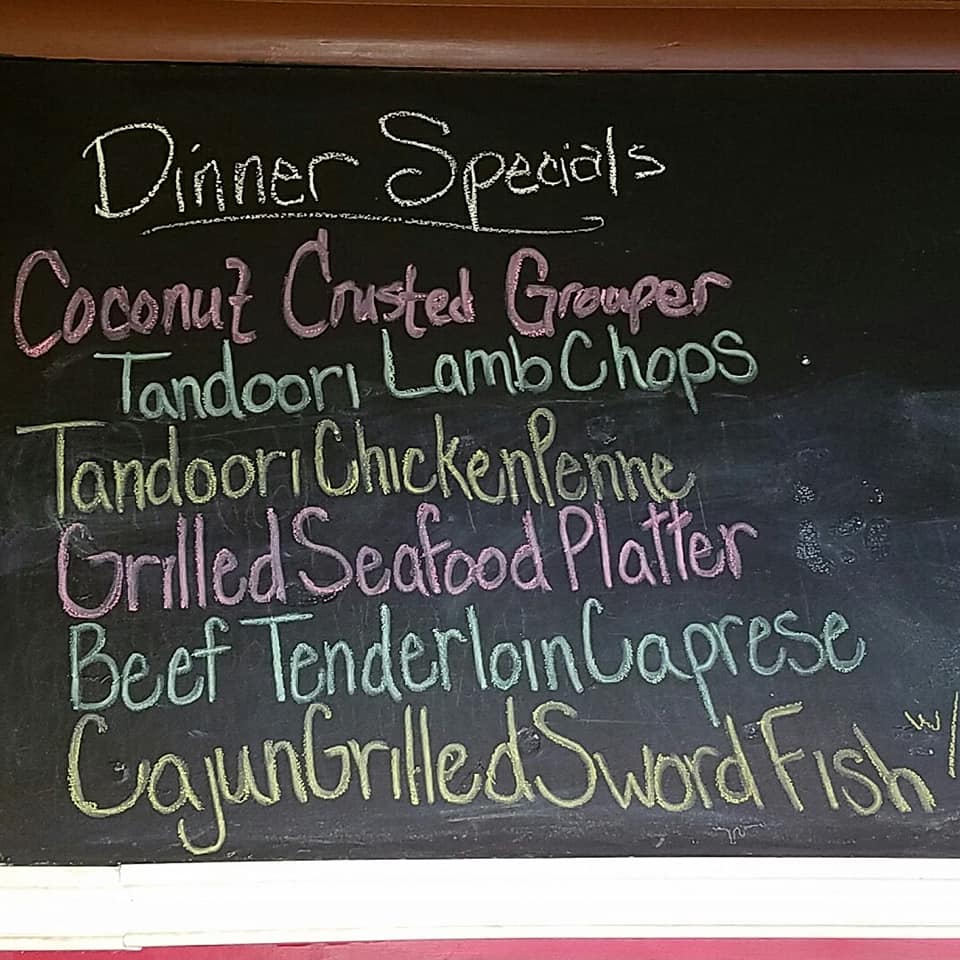 Dinner Specials
Coconut Crusted Grouper
Tandoori Lamb Chops
Tandoori Chicken Penne
Grilled Seafood Platter
Beef Tenderloin Caprese
Cajun Grilled Sword Fish w/